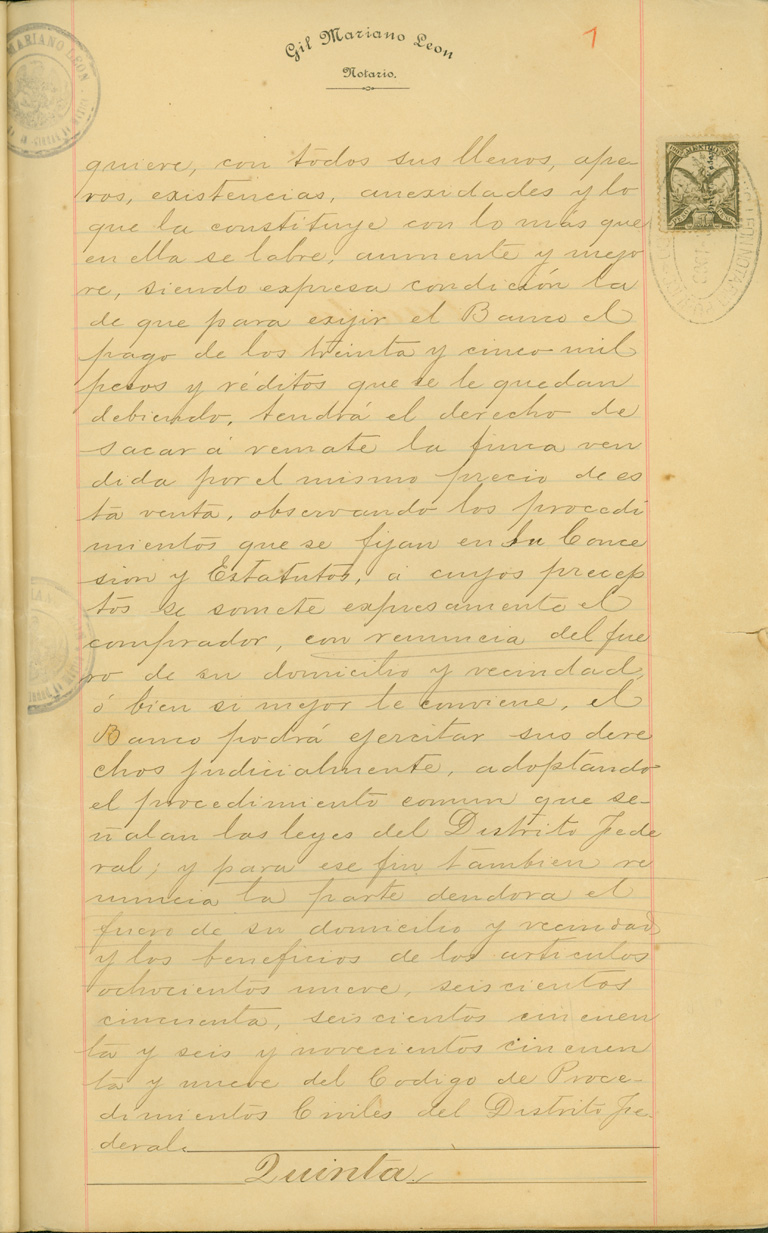 Gil Mariano Leon
Notario.
1
MARIANO LEON
quiere, con todos sus llenos, ape-
ros, existencias, anexidades y lo
que la constituye con lo más que
en ella se labre, aumente y mejo
re, siendo expresa condición la
de que para exijir el Banco el
pago de los treinta y cinco mil
pesos y réditos que se le quedan
debiendo, tendrá el derecho de
sacar á remate la finca ven
dida por el mismo precio de es
ta venta, observando los procedi
mientos que se fijan en su Conce
sion y Estatutos, á cuyos precep
tos se somete expresamente el
comprador, con renuncia del fue
ro de su domicilio y vecindad,
ó bien si mejor le conviene, el
Banco podrá ejercitar sus dere
chos judicialmente, adoptando
el procedimiento comun que se-
ñalan las leyes del Distrito Fede
ral; y para ese fin tambien re
nuncia la parte deudora el
fuero de su domicilio y vecindad
y los beneficios de los articulos
ochocientos nueve, seiscientos
cincuenta, seiscientos cincuen
ta y seis y novecientos cincuen
ta y nueve del Codigo de Proce-
dimientos Civiles del Distrito Fe-
deral.
Quinta.